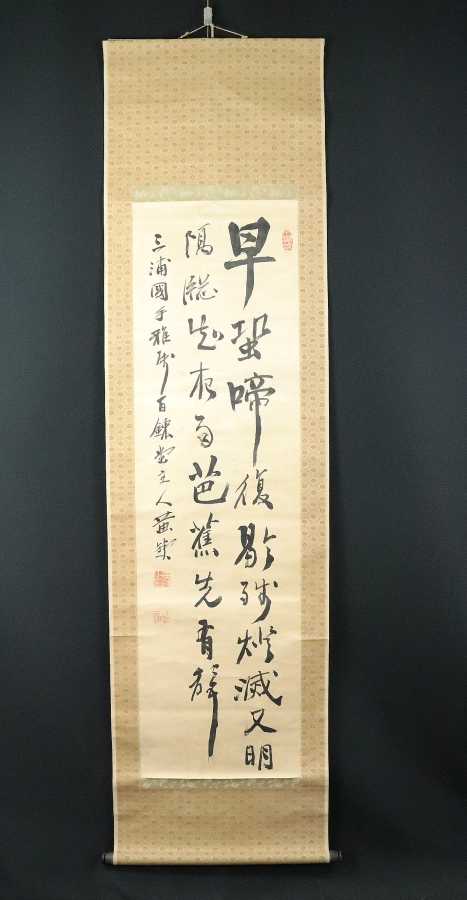 早蛩啼復歇殘燈滅又明
隔窓知夜雨芭蕉先有聲
三浦國手雅属百錬堂主人黄